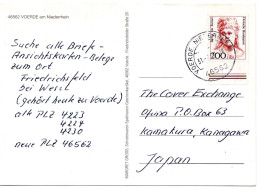 46562 VOERDE am Niederrhein
Suche alle Briefe-
Ansichtskarten-Belege
zum Ort
Friedrichsfeld
bei Wesel
(gehört heute zu Voerde)
alte PLZ 4223
4224
4230
neue PLZ 46562
200
46562
The Cover Exchange
P.O. Box
Kamakura, Kanagawa
Japan